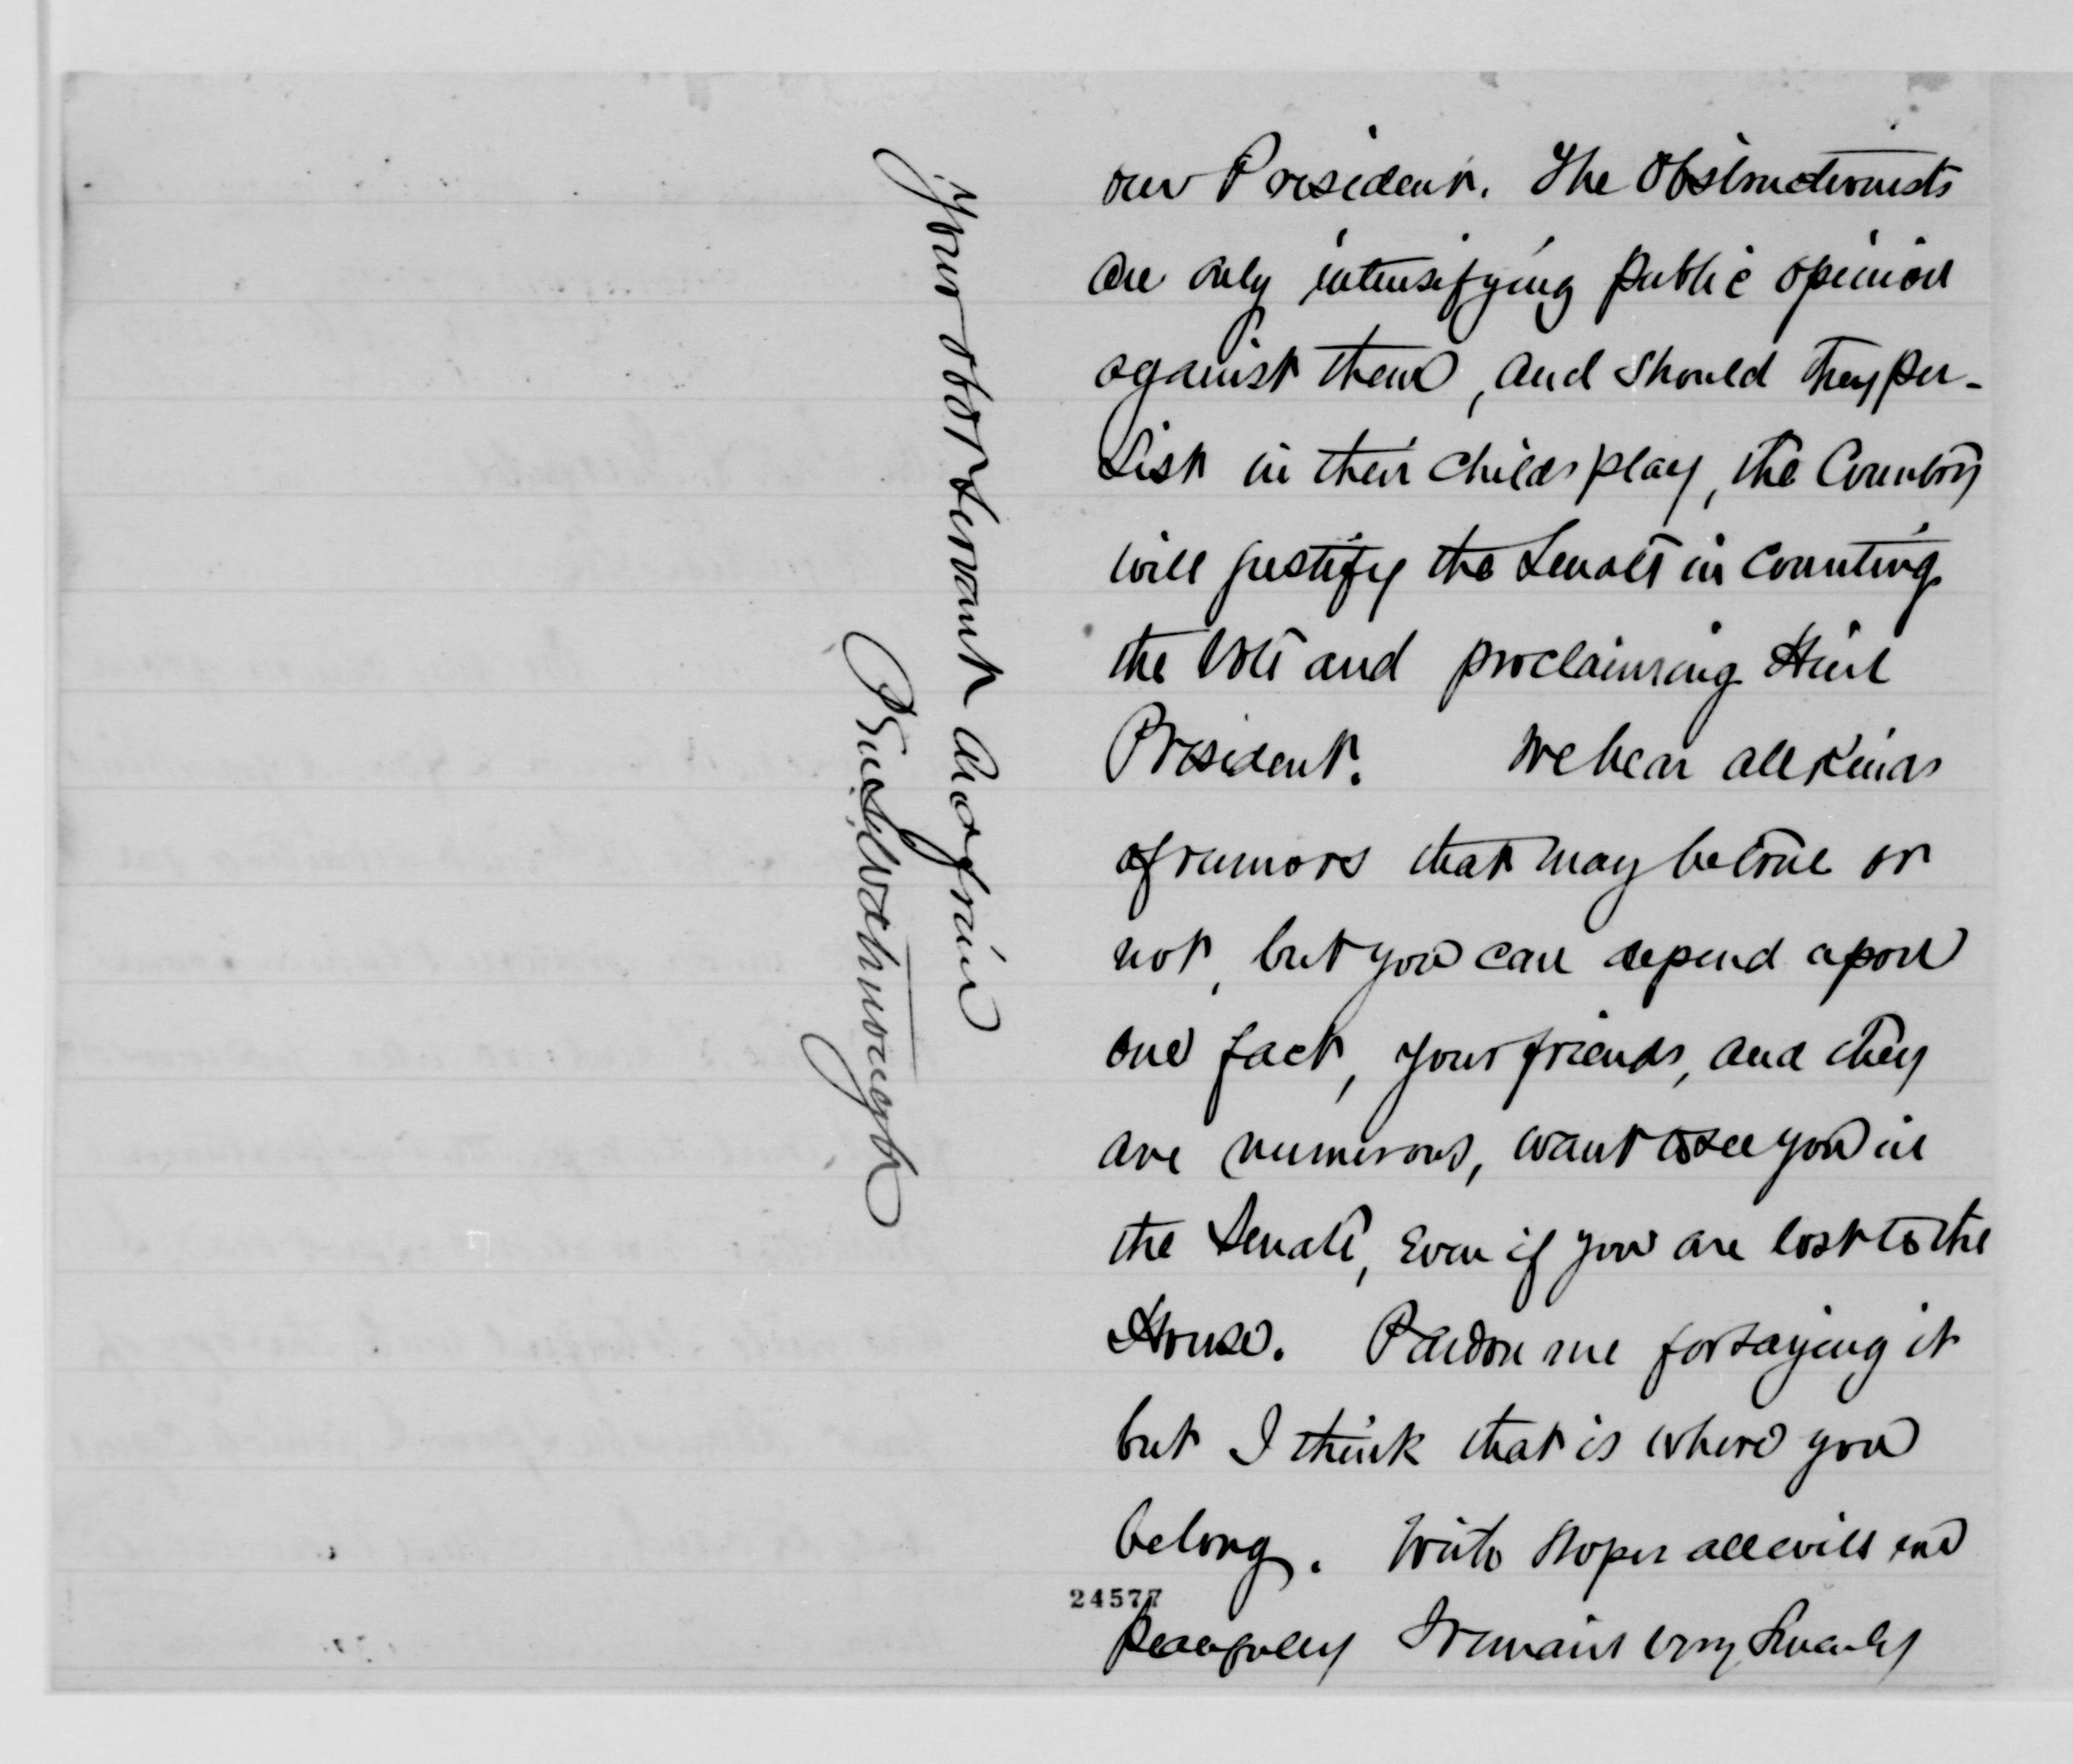 our President. The Obstructionists
are only intensifying public opinion
against them, and should they per-
sist in their childs play, the Country
will justify the Senate in counting
the Vote and proclaiming Him
President. We hear all kinds
of rumors that may be true or
not, but you can depend upon
one fact, your friends, and they
are numerous, want to see you in
the Senate, Even if you are lost to the
House. Pardon me for saying it
but I think that is where you
belong. With hopes all will end
24577
peacefully I remain very sincerely
Your obdt servant and friend